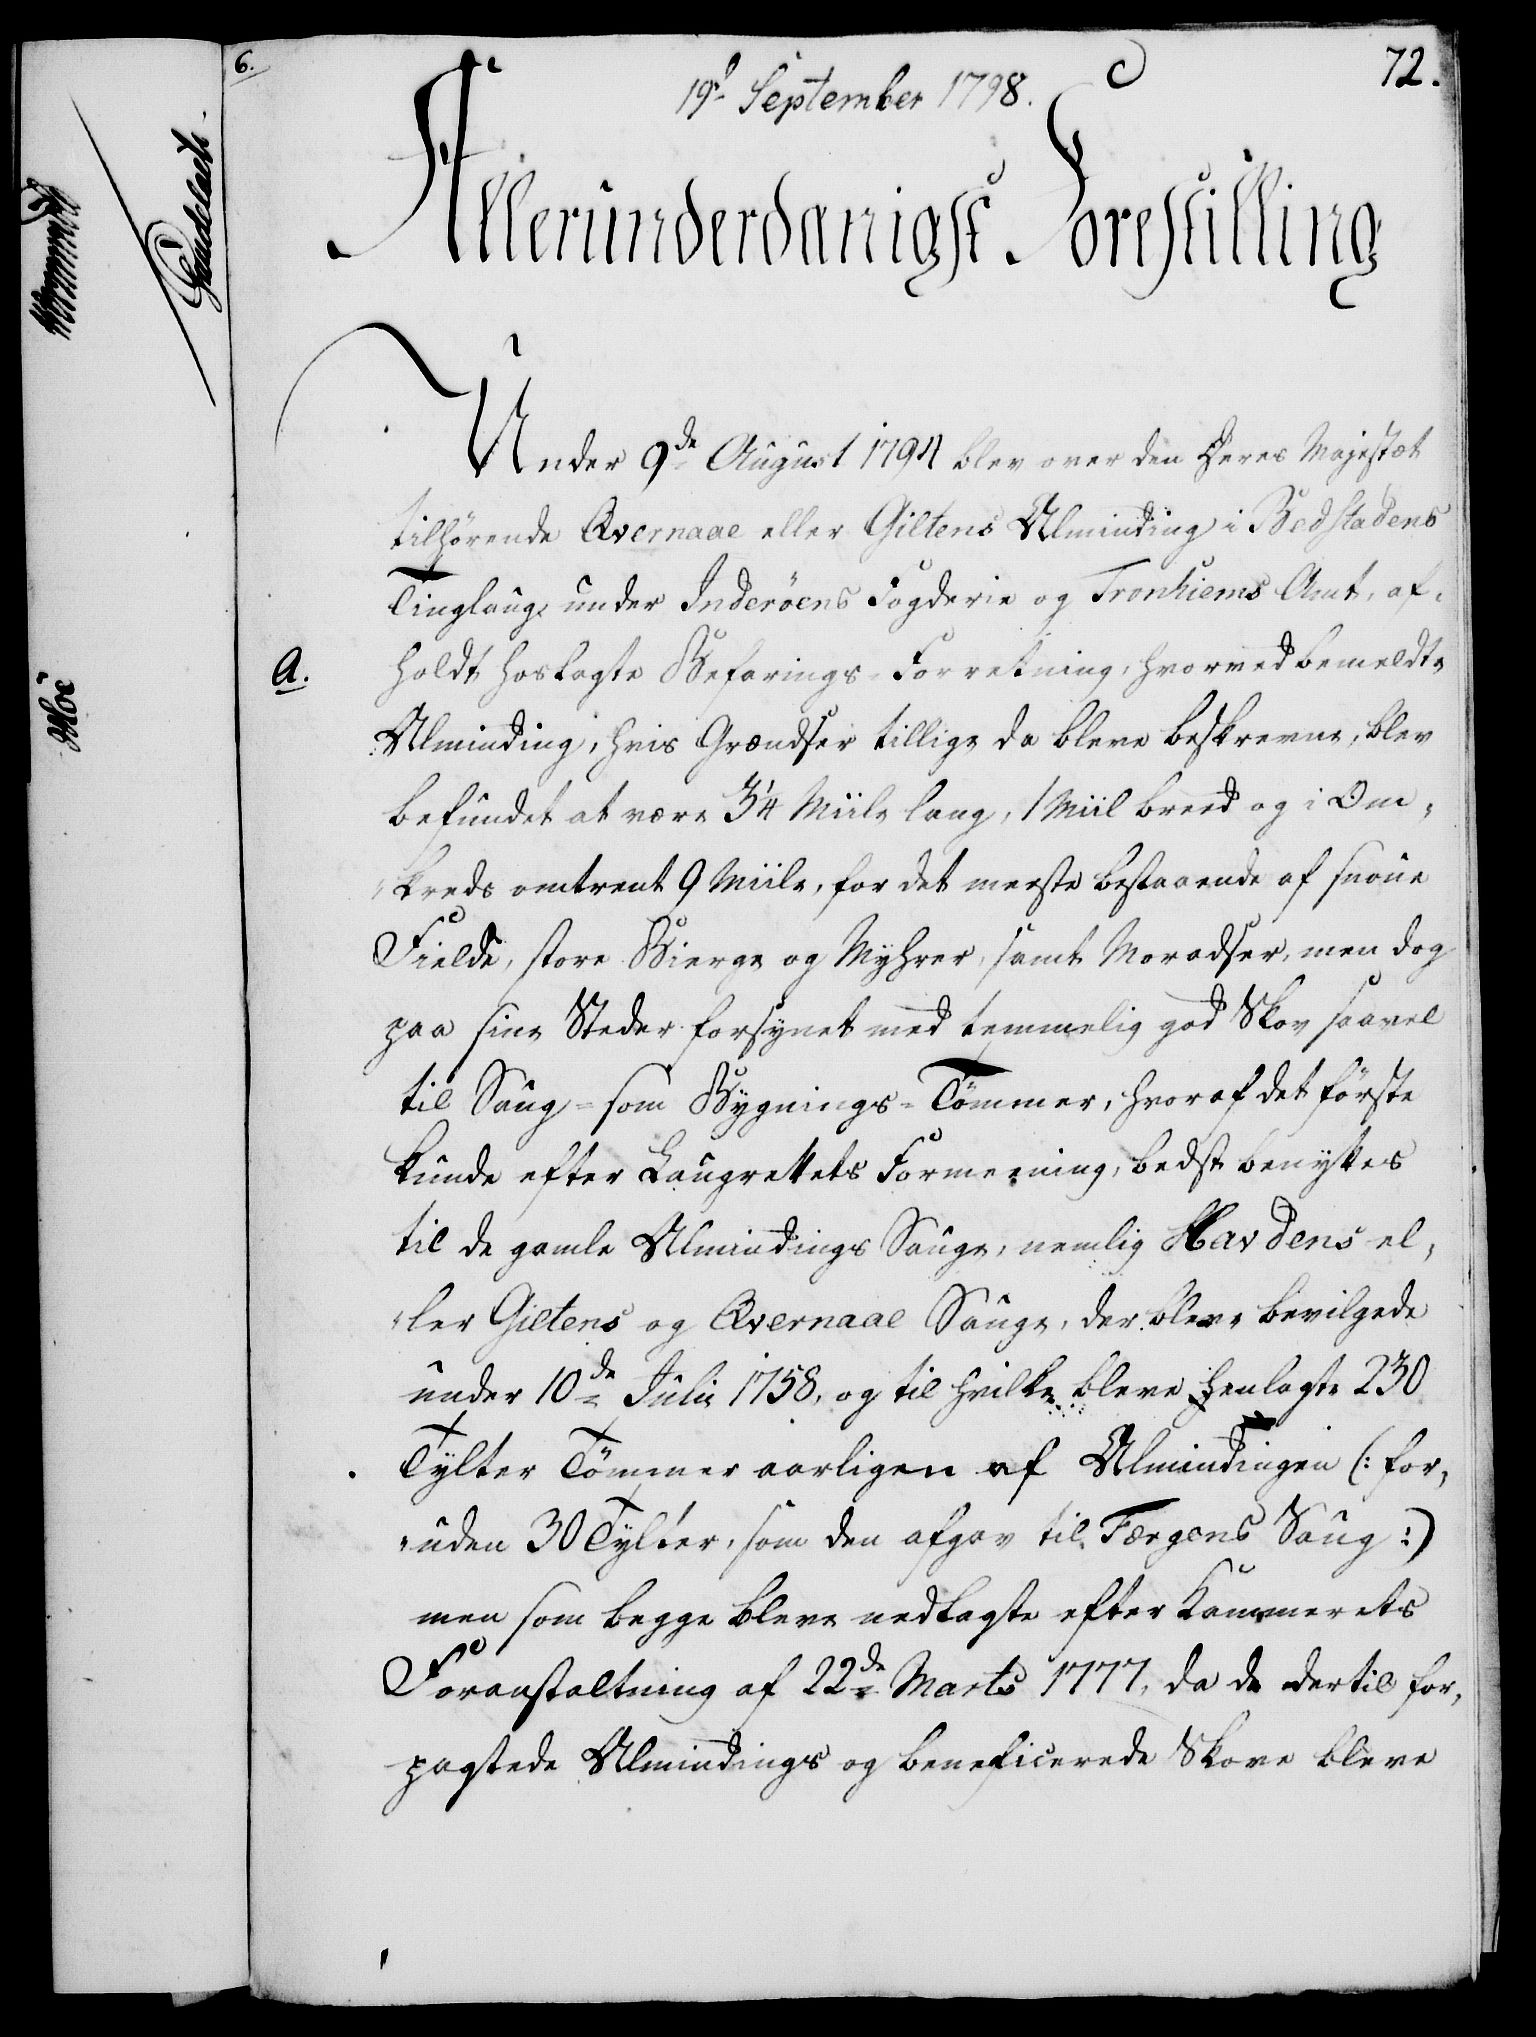 6.
72.
19d September 1798.
Allerunderdanigst Forestilling
Under 9de August 1794 blev over den Deres Majestæt
tilhörende Qvernaae eller Giltens Alminding i Bedstadens
Tinglaug, under Inderöens Fogderie og Tronhiems Amt, af-
A.
holdt hoslagte Befarings-Forretning, hvorved bemeldte
Alminding, hvis Grændser tillige da bleve beskrevne, blev
befundet at være 3¼ Miile lang, 1 Miil breed og i Om-
kreds omtrent 9 Miile, for det meeste bestaaende af snoue
Fielde, store Bierge og Myhrer, samt Moradser, men dog
paa sine Steder forsynet med temmelig god Skov saavel
til Saug- som Bygnings-Tömmer, hvoraf det förste
kunde efter Laugrettets Formeening, bedst benyttes
til de gamle Almindings Sauge, nemlig Havdens el-
ler Giltens og Qvernaae Sauge, der bleve bevilgede
under 10de Julii 1758, og til hvilke bleve henlagte 230
Tylter Tömmer aarligen af Almindingen (: for-
uden 30 Tylter, som den afgav til Færgens Saug :)
men som begge bleve nedlagte efter Kammerets
Foranstaltning af 22de Marts 1777, da de dertil for-
pagtede Almindings og beneficerede Skove bleve
Moe